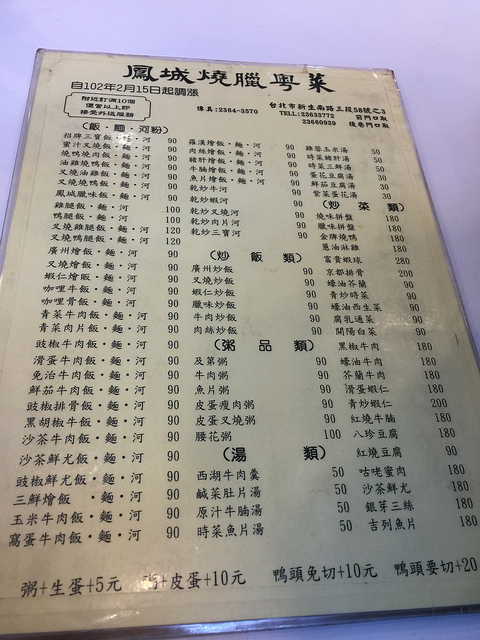 鳳城燒臘粵菜
自102年2月15日起調漲
附近訂滿10個
便當以上即
接受外送服務
傳真:2364-3570
台北市新生南路三段58號之3
TELL:23633772
23660939
前門口取
後巷門口取
(飯·麵·河粉)
招牌三寶飯·麵·河 90
蜜汁叉燒飯·麵·河 90
燒鴨燒肉飯·麵·河 90
油雞燒鴨飯·麵·河 90
叉燒油雞飯·麵·河 90
叉燒燒鴨飯·麵·河 90
鳳城臘味飯·麵·河 90
雞腿飯·麵·河 100
鴨腿飯·麵·河 100
叉燒雞腿飯·麵·河 120
叉燒鴨腿飯·麵·河 120
廣州燴飯·麵·河 90
叉燒燴飯·麵·河 90
蝦仁燴飯·麵·河 90
咖哩牛飯·麵·河 90
咖哩骨飯·麵·河 90
青菜牛肉飯·麵·河 90
青菜肉片飯·麵·河 90
豉椒牛肉飯·麵·河 90
滑蛋牛肉飯·麵·河 90
免治牛肉飯·麵·河 90
鮮茄牛肉飯·麵·河 90
豉椒排骨飯·麵·河 90
黑胡椒牛飯·麵·河 90
沙茶牛肉飯·麵·河 90
沙茶鮮尤飯·麵·河 90
豉椒鮮尤飯·麵·河 90
三鮮燴飯·麵·河 90
玉米牛肉飯·麵·河 90
窩蛋牛肉飯·麵·河 90
羅漢燴飯·麵·河 90
肉絲燴飯·麵·河 90
豬肝燴飯·麵·河 90
牛腩燴飯·麵·河 90
魚片燴飯·麵·河 90
乾炒牛河 90
乾炒蝦河 90
乾炒叉燒河 90
乾炒肉片河 90
乾炒三寶河 90
(炒飯類)
廣州炒飯 90
叉燒炒飯 90
蝦仁炒飯 90
臘味炒飯 90
牛肉炒飯 90
肉絲炒飯 90
(粥品類)
及第粥 90
牛肉粥 90
魚片粥 90
皮蛋瘦肉粥 90
皮蛋叉燒粥 90
腰花粥 100
(湯類)
西湖牛肉羹 50
鹹菜肚片湯 50
原汁牛腩湯 50
時菜魚片湯 50
雞蓉玉米湯 50
時菜豬肝湯 50
時菜三鮮湯 50
蛋花豆腐湯 30
鮮茄豆腐湯 30
紫菜蛋花湯 30
(炒菜類)
燒味拼盤 180
臘味拼盤 180
金牌燒鴨 180
蔥油淋雞 180
富貴蝦球 280
京都排骨 200
蠔油芥蘭 90
青炒時菜 90
蠔油西生菜 90
腐乳通菜 90
開陽白菜 90
黑椒牛肉 180
蠔油牛肉 180
芥蘭牛肉 180
滑蛋蝦仁 180
青炒蝦仁 200
紅燒牛腩 180
八珍豆腐 180
紅燒豆腐 90
咕咾蜜肉 180
沙茶鮮尤 180
銀芽三絲 180
吉列魚片 180
粥+生蛋+5元 粥+皮蛋+10元 鴨頭免切+10元 鴨頭要切+20